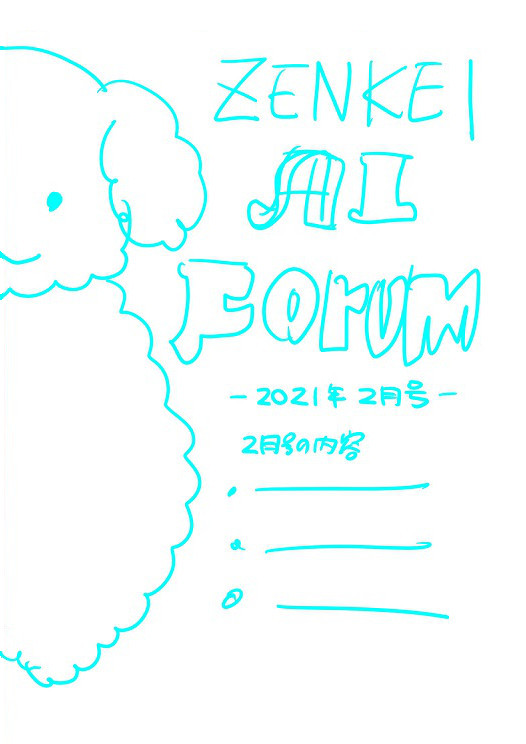 ZENKEI
AI
Forum
-2021年 2月号-
2月号の内容